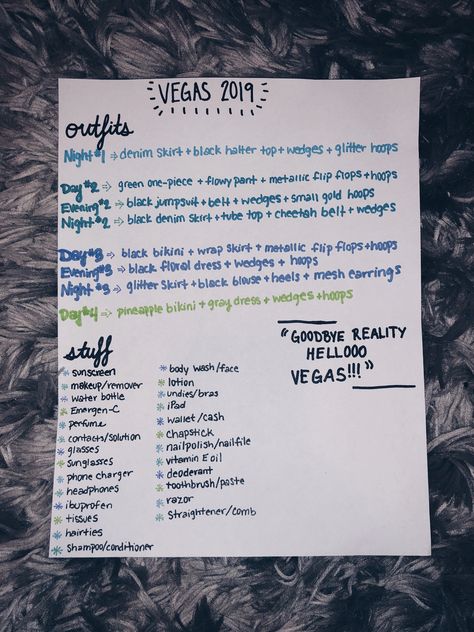 VEGAS 2019
outfits
Night #1 → denim skirt + black halter top + wedges + glitter hoops
Day #2 → green one-piece + flowy pant + metallic flip flops + hoops
Evening #2 → black jumpsuit + belt + wedges + small gold hoops
Night #2 → black denim skirt + tube top + cheetah belt + wedges
Day #3 → black bikini + wrap skirt + metallic flip flops + hoops
Evening #3 → black floral dress + wedges + hoops
Night #3 → glitter skirt + black blouse + heels + mesh earrings
Day #4 → pineapple bikini + gray dress + wedges + hoops
"GOODBYE REALITY
HELLOOO
VEGAS!!!"
stuff
* sunscreen
* makeup/remover
* water bottle
* Emergen-C
* perfume
* contacts/solution
* glasses
* sunglasses
* phone charger
* headphones
* ibuprofen
* tissues
* hairties
* shampoo/conditioner
* body wash/face
* lotion
* undies/bras
* iPad
* wallet/cash
* chapstick
* nailpolish/nailfile
* vitamin E oil
* deoderant
* toothbrush/paste
* razor
* straightener/comb